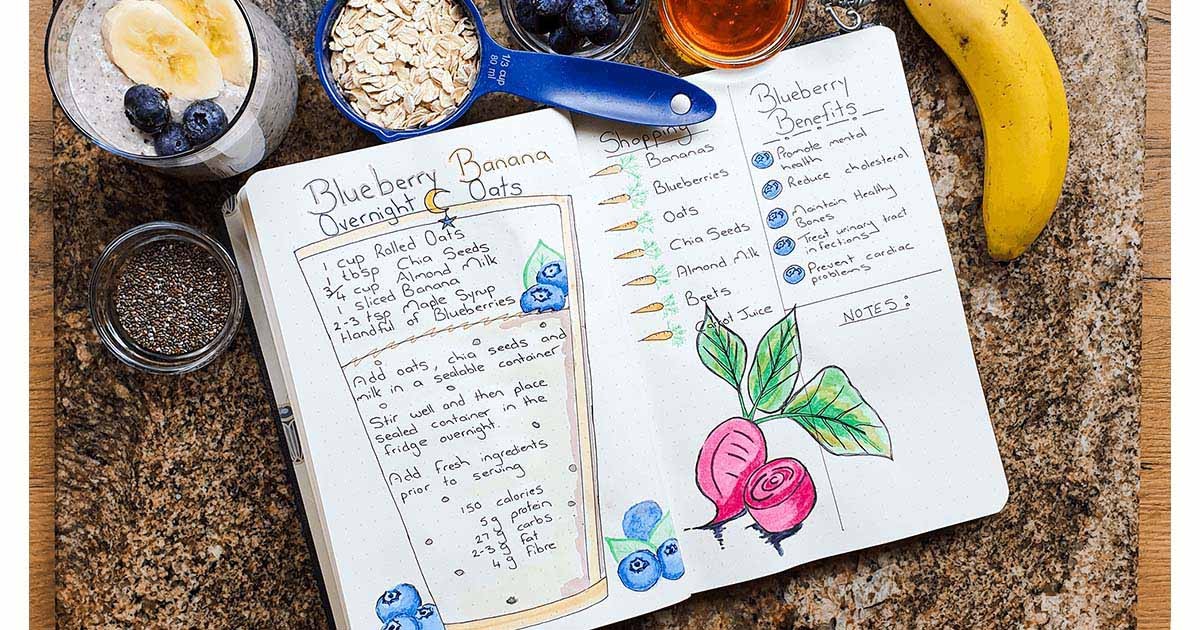 1/3 cup
80 ml
Blueberry Banana
Overnight Oats
1 cup Rolled Oats
1 tbsp Chia Seeds
3/4 cup Almond Milk
1 sliced Banana
2-3 tsp Maple Syrup
Handful of Blueberries
Add oats, chia seeds and
milk in a sealable container
Stir well and then place
sealed container in the
fridge overnight.
Add fresh ingredients
prior to serving
150 calories
5g protein
27g carbs
2-3g fat
4g fibre
Shopping
Bananas
Blueberries
Oats
Chia Seeds
Almond Milk
Beets
Juice
Blueberry
Benefits
Promote mental
health
Reduce cholesterol
Maintain Healthy
Bones
Treat urinary tract
infections
Prevent cardiac
problems
NOTES: